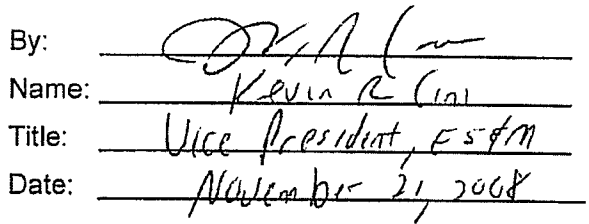 By:
Name: Kevin R Cini
Title: Vice President, ES&M
Date: November 21, 2008